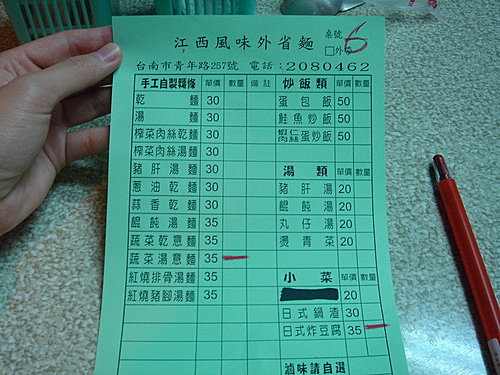 江西風味外省麵
桌號 6
□外帶
台南市青年路257號 電話:2080462
手工自製麵條 單價 數量 備註 炒飯類 單價 數量
乾麵 30 蛋包飯 50
湯麵 30 鮭魚炒飯 50
榨菜肉絲乾麵 30 蝦仁蛋炒飯 50
榨菜肉絲湯麵 30
豬肝湯麵 30 湯類 單價 數量
蔥油乾麵 30 豬肝湯 20
蒜香乾麵 30 餛飩湯 20
餛飩湯麵 35 丸仔湯 20
蔬菜乾意麵 35 燙青菜 20
蔬菜湯意麵 35
紅燒排骨湯麵 35 小菜 單價 數量
紅燒豬腳湯麵 35 20
日式鍋渣 30
日式炸豆腐 35
滷味請自選